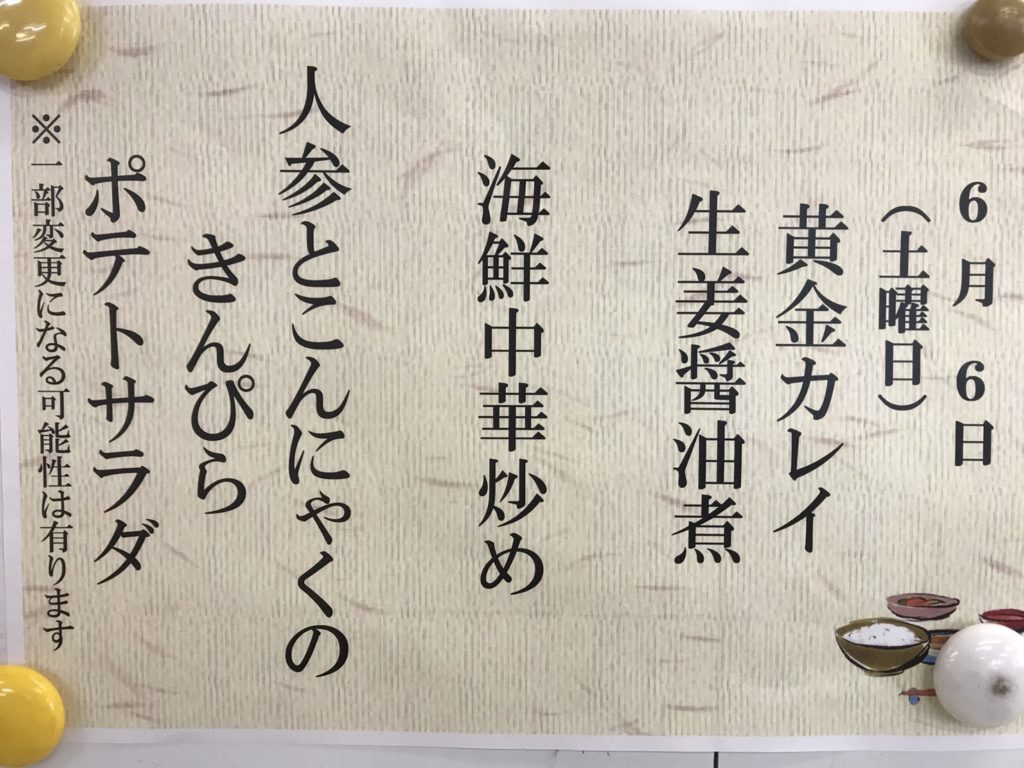 6月6日
（土曜日）
黄金カレイ
生姜醤油煮
海鮮中華炒め
人参とこんにゃくの
きんぴら
ポテトサラダ
※一部変更になる可能性は有ります